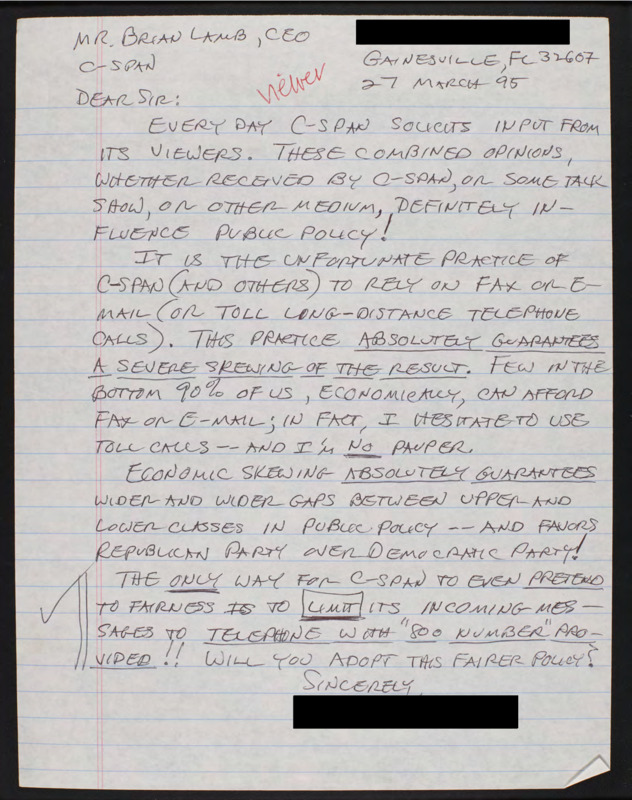 MR. BRIAN LAMB, CEO
C-SPAN
GAINESVILLE, FL 32607
27 MARCH 95
viewer
DEAR SIR:
EVERY DAY C-SPAN SOLICITS INPUT FROM
ITS VIEWERS. THESE COMBINED OPINIONS,
WHETHER RECEIVED BY C-SPAN, OR SOME TALK
SHOW, OR OTHER MEDIUM, DEFINITELY IN-
FLUENCE PUBLIC POLICY!
IT IS THE UNFORTUNATE PRACTICE OF
C-SPAN (AND OTHERS) TO RELY ON FAX OR E-
MAIL (OR TOLL LONG-DISTANCE TELEPHONE
CALLS). THIS PRACTICE ABSOLUTELY GUARANTEES
A SEVERE SKEWING OF THE RESULT. FEW IN THE
BOTTOM 90% OF US, ECONOMICALLY, CAN AFFORD
FAX OR E-MAIL; IN FACT, I HESITATE TO USE
TOLL CALLS -- AND I'M NO PAUPER.
ECONOMIC SKEWING ABSOLUTELY GUARANTEES
WIDER AND WIDER GAPS BETWEEN UPPER AND
LOWER CLASSES IN PUBLIC POLICY -- AND FAVORS
REPUBLICAN PARTY OVER DEMOCRATIC PARTY!
THE ONLY WAY FOR C-SPAN TO EVEN PRETEND
TO FAIRNESS IS TO LIMIT ITS INCOMING MES-
SAGES TO TELEPHONE WITH "800 NUMBER" PRO-
VIDED!! WILL YOU ADOPT THIS FAIRER POLICY?
SINCERELY,